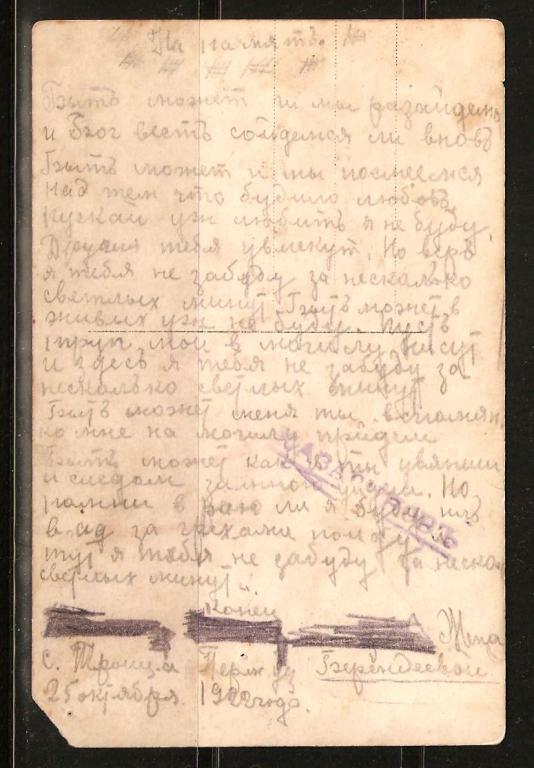 На память.
Быть может и мы разайдемь
и Бог весть сойдемся ли вновь
Быть может и мы посмеемся
над тем что будило любовь
Пускай уж любить я не буду,
Другия тебя увлекут. Но верь
я тебя не забуду за несколько
светлых минут. Быть может в
живых уж не буду. Пусть
труп мой в могилу несут
и здесь я тебя не забуду за
несколько светлых минут
Быть может меня ты вспомян.
ко мне на могилу прийдеш
Быть может как и ты увянеш
и следом замной. Но
помни в раю ли я буду иль
в ад за грехами пойду
тут я тебя не забуду за неско
светлых минут.
Конец
Жена
с. Троица Перм. уз Берендеевой
25 октября 1922 года.